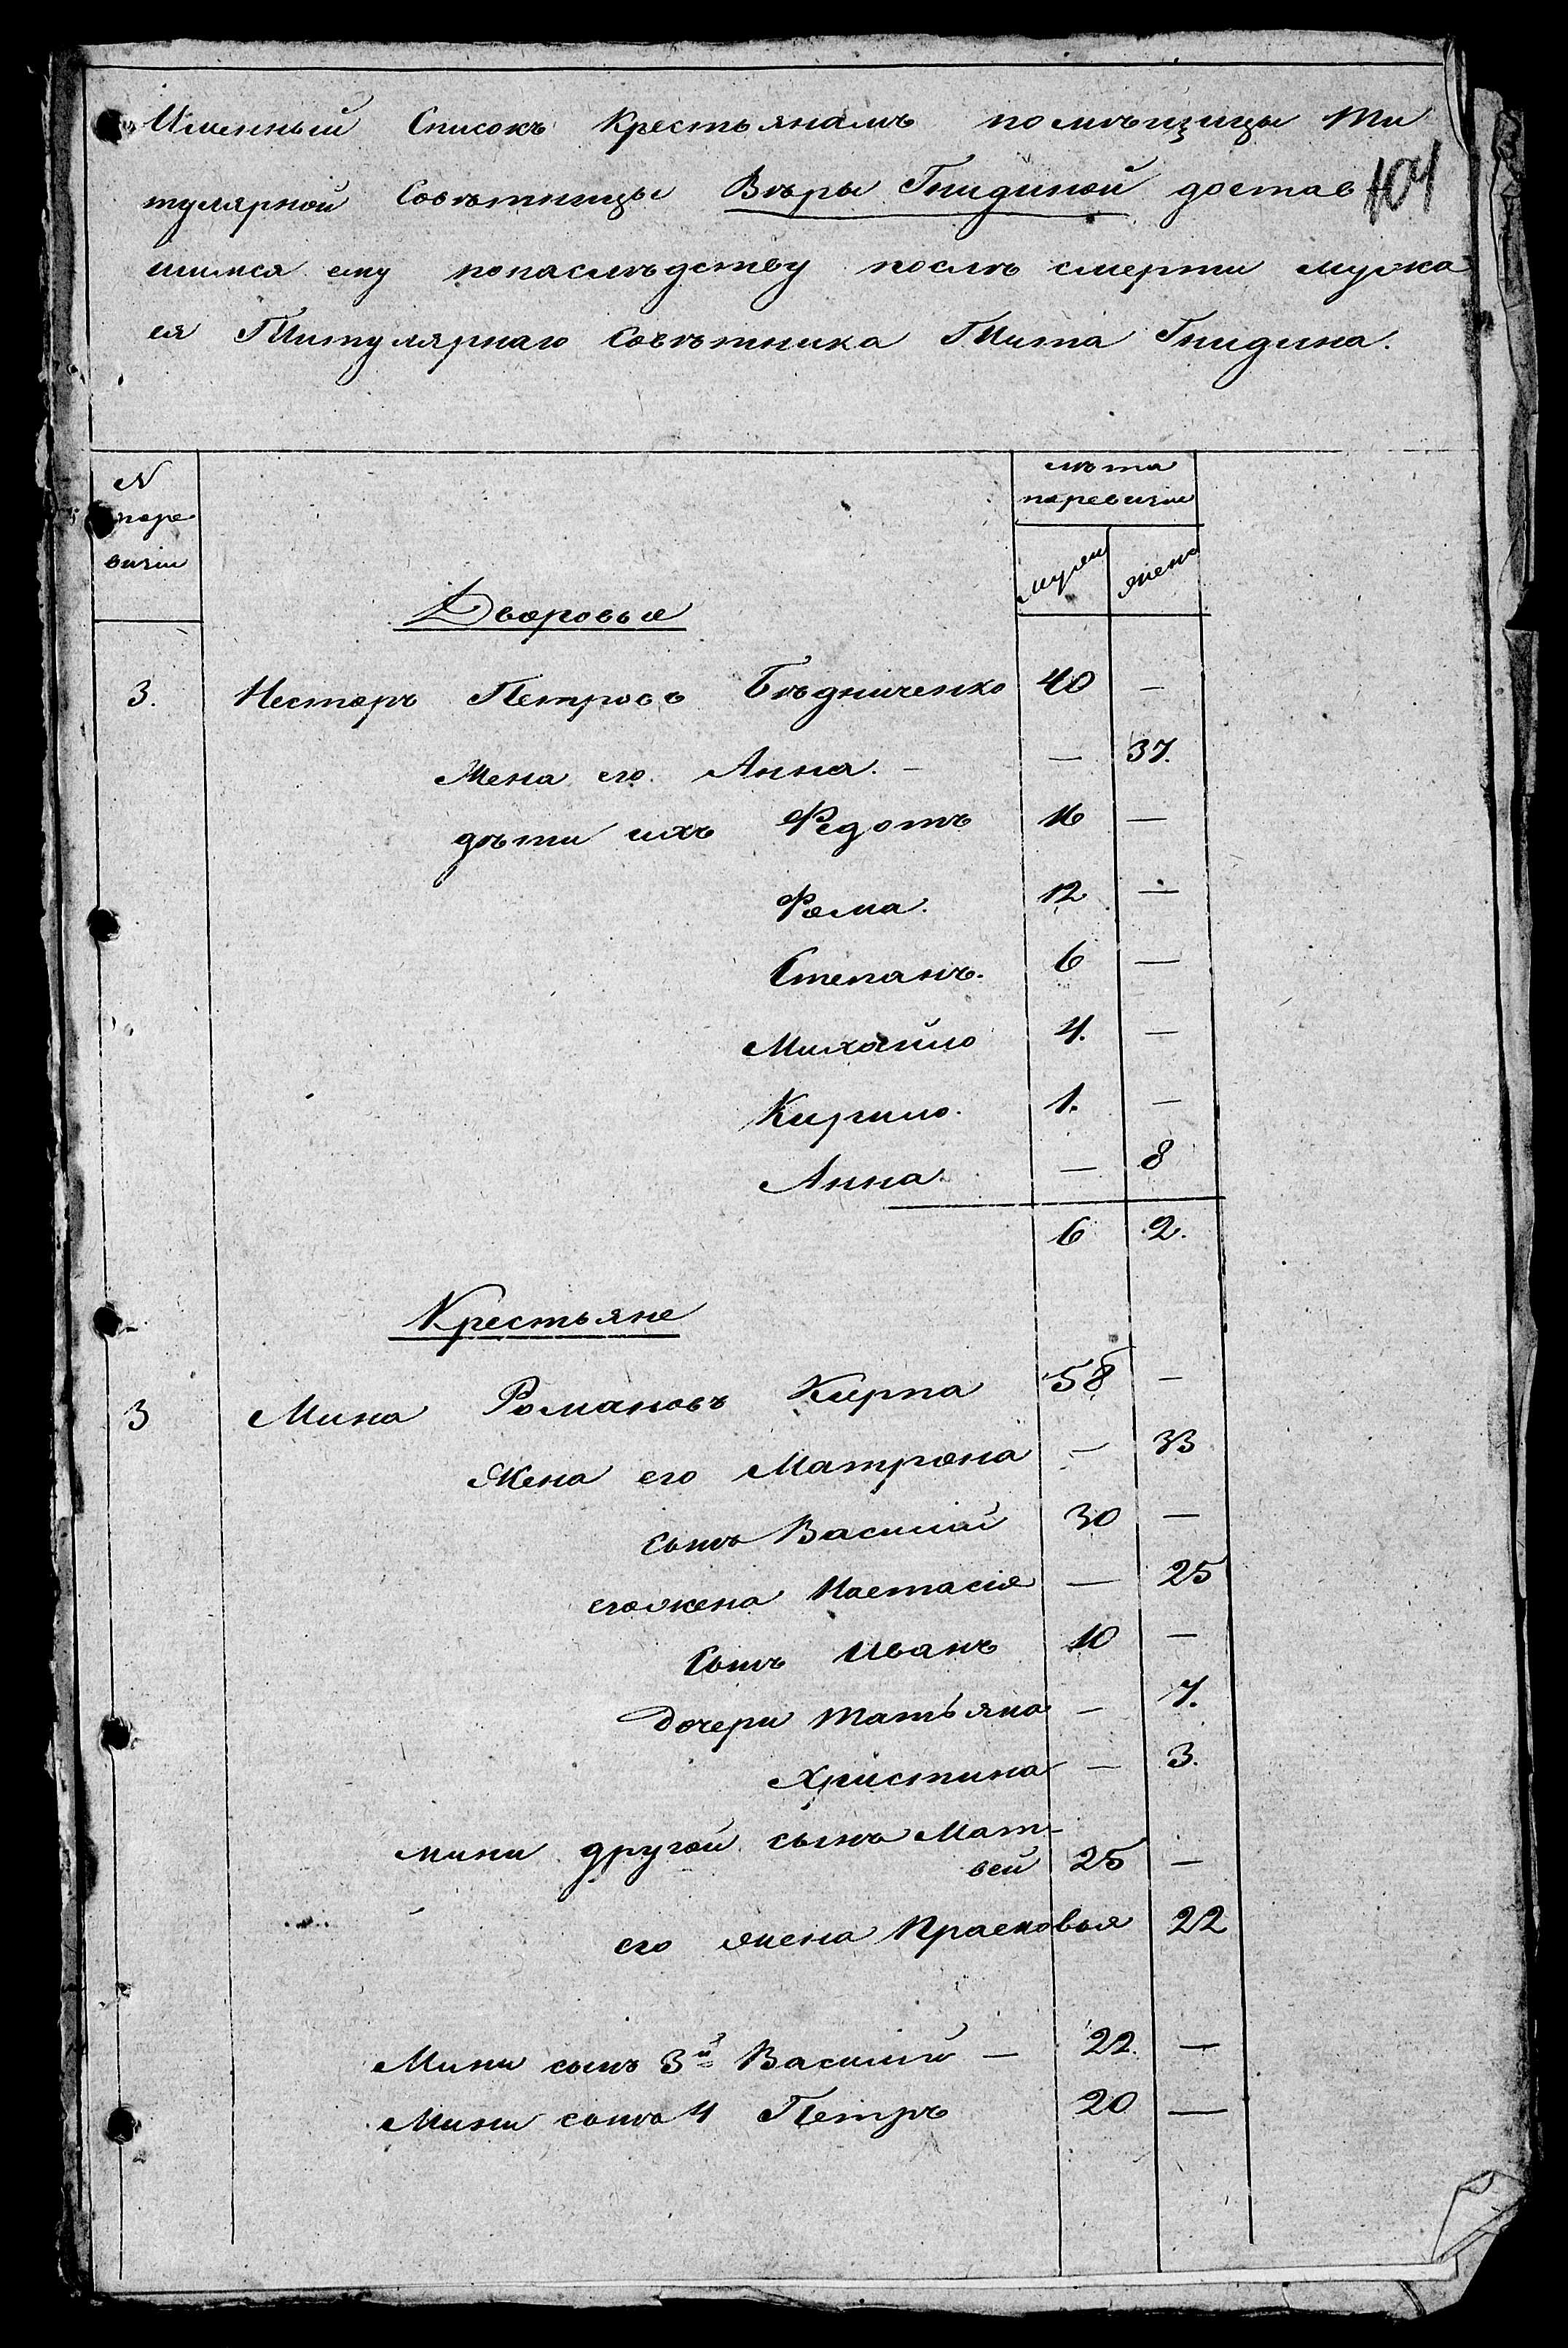 Именный Списокъ Крестьянамъ помѣщицы Ти
тулярной Совѣтницы Вѣры Гнидиной достав
104
шимся ему понаслѣдству послѣ смерти мужа
ея Титулярнаго Совѣтника Тита Гнидина.
N
поре
визіи
лѣта
поревизіи
мужеи
жено
Дворовые
3. Несторъ Петровъ Бѣдниченко 40 —
Жена его Анна. — — 37.
дѣти ихъ Федотъ 16 —
Фома. 12 —
Степанъ. 6 —
Михайло 4. —
Кирило. 1. —
Анна. — 8
6 2.
Крестьяне
3 Мина Романовъ Кирпа 58 —
Жена его Матрона — 33
сынъ Василій 30 —
его жена Настасія — 25
Сынъ Иванъ 10 —
дочери Татьяна — 7.
Христина — 3.
мини другой сынъ Мат-
вей 25 —
его жена Прасковья 22
Мини сынъ 3й Василій — 22. —
Мини сынъ 4 Петръ 20 —